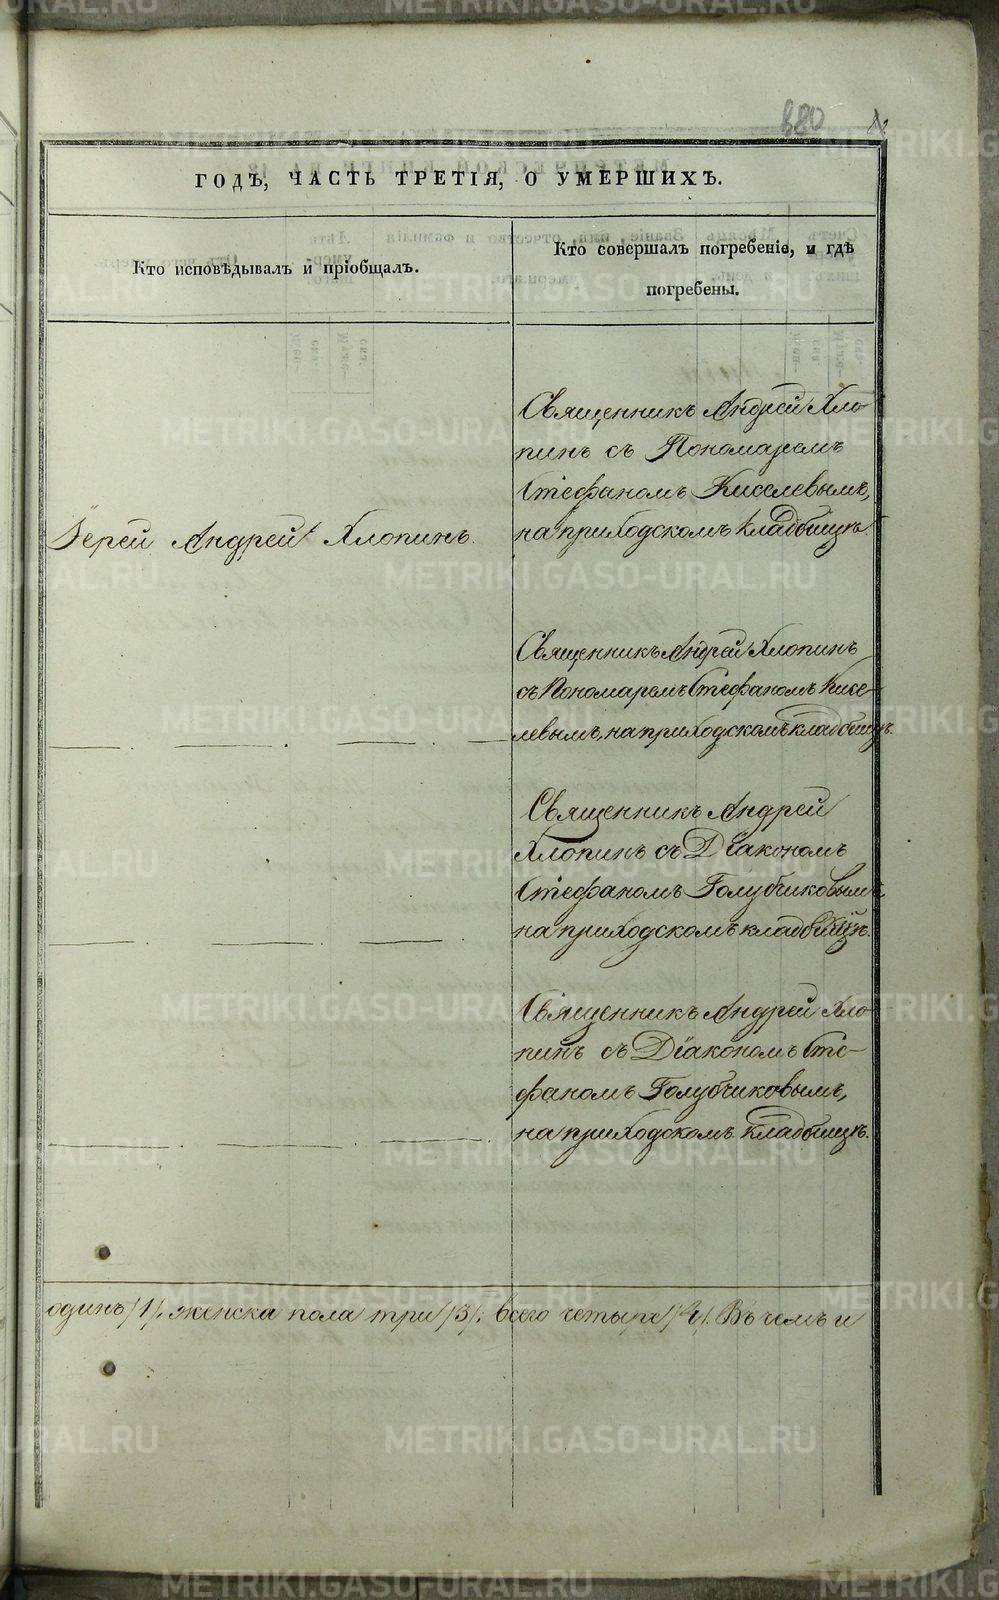 380
ГОДЪ, ЧАСТЬ ТРЕТІЯ, О УМЕРШИХЪ.
Кто исповѣдывалъ и пріобщалъ.
Кто совершалъ погребеніе, и гдѣ
погребены.
Іерей Андрей Хлопинъ.
Священникъ Андрей Хло
пинъ съ Пономаремъ
Стефаномъ Киселевымъ,
на приходскомъ кладбищѣ.
Священникъ Андрей Хлопинъ
съ Пономаремъ Стефаномъ Кисе-
левымъ, на приходскомъ кладбищѣ.
Священникъ Андрей
Хлопинъ съ Діакономъ
Стефаномъ Голубчиковымъ,
на приходскомъ кладбищѣ.
Священникъ Андрей Хло
пинъ съ Діакономъ Сте-
фаномъ Голубчиковымъ,
на приходскомъ кладбищѣ.
одинъ /1/. женска пола три /3/. всего четыре /4/. Въ чемъ и
METRIKI.GASO-URAL.RU